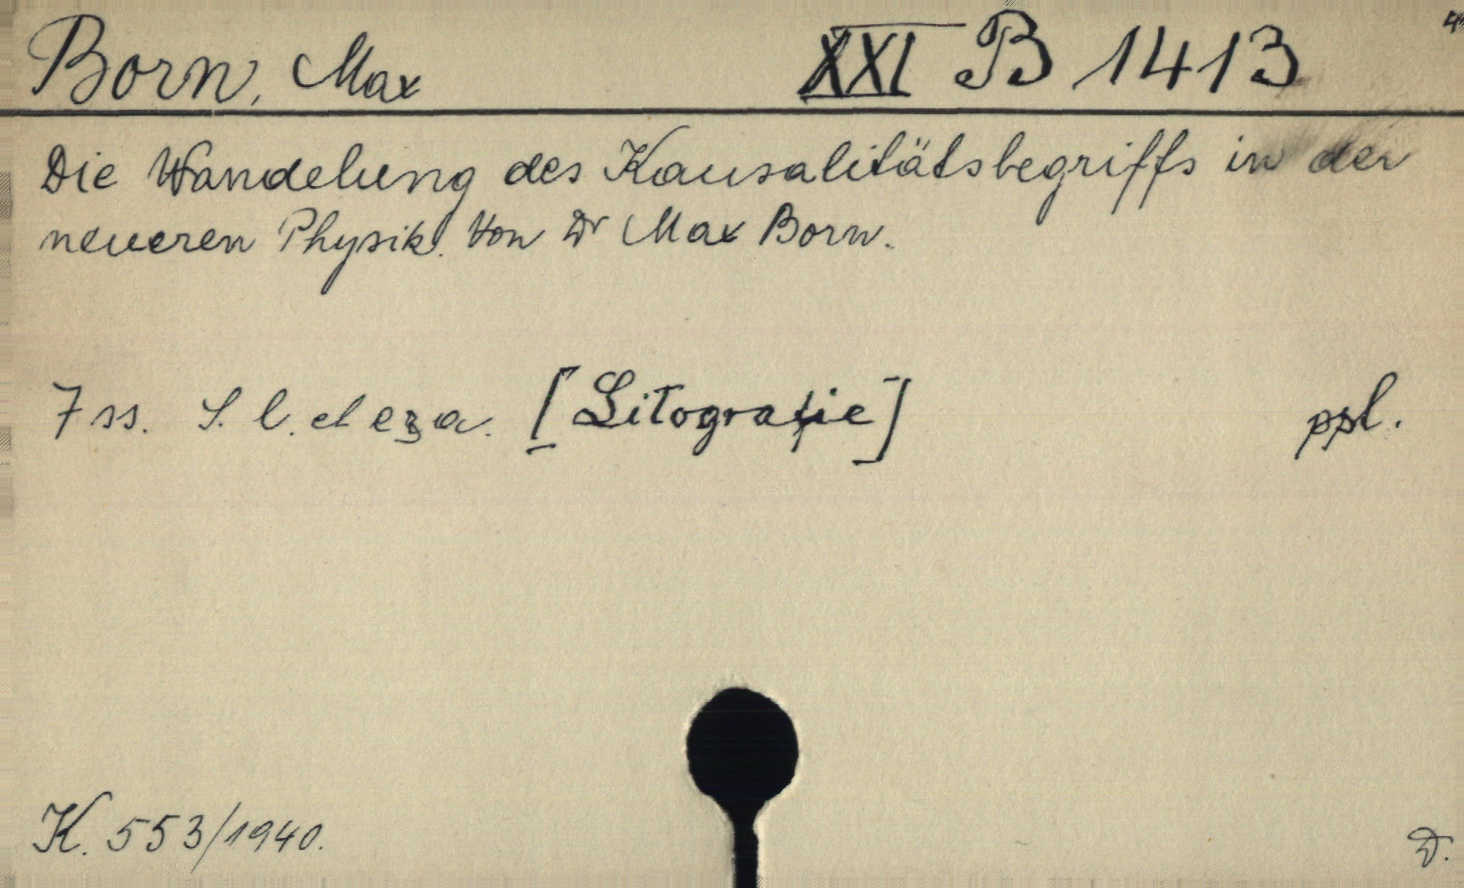 Born, Max XXI B 1413
Die Wandelung des Kausalitätsbegriffs in der
neueren Physik. Von Dr Max Born.
7 ss. S. l. et a. [Litografie] ppl.
K. 553/1940. D.